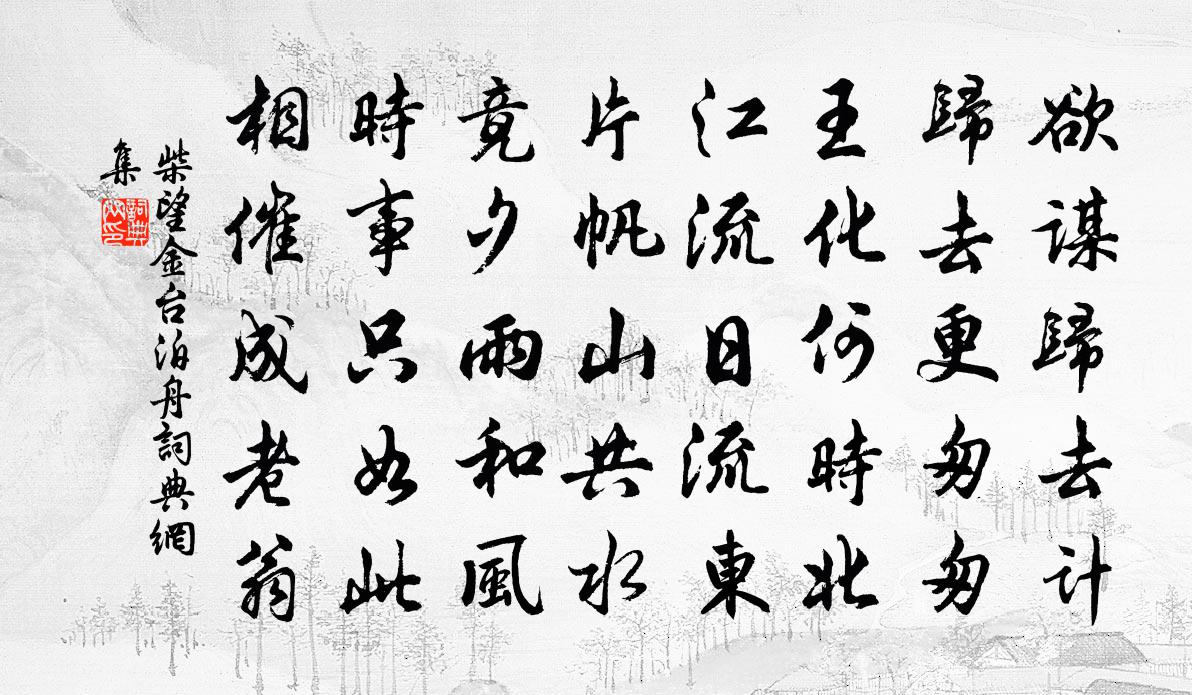 欲謀歸去计
歸去更匆匆
王化何時北
江流日流東
片帆山共水
竟夕雨和風
時事只如此
相催成老翁
柴望金台泊舟詞典網
集
詞典網印